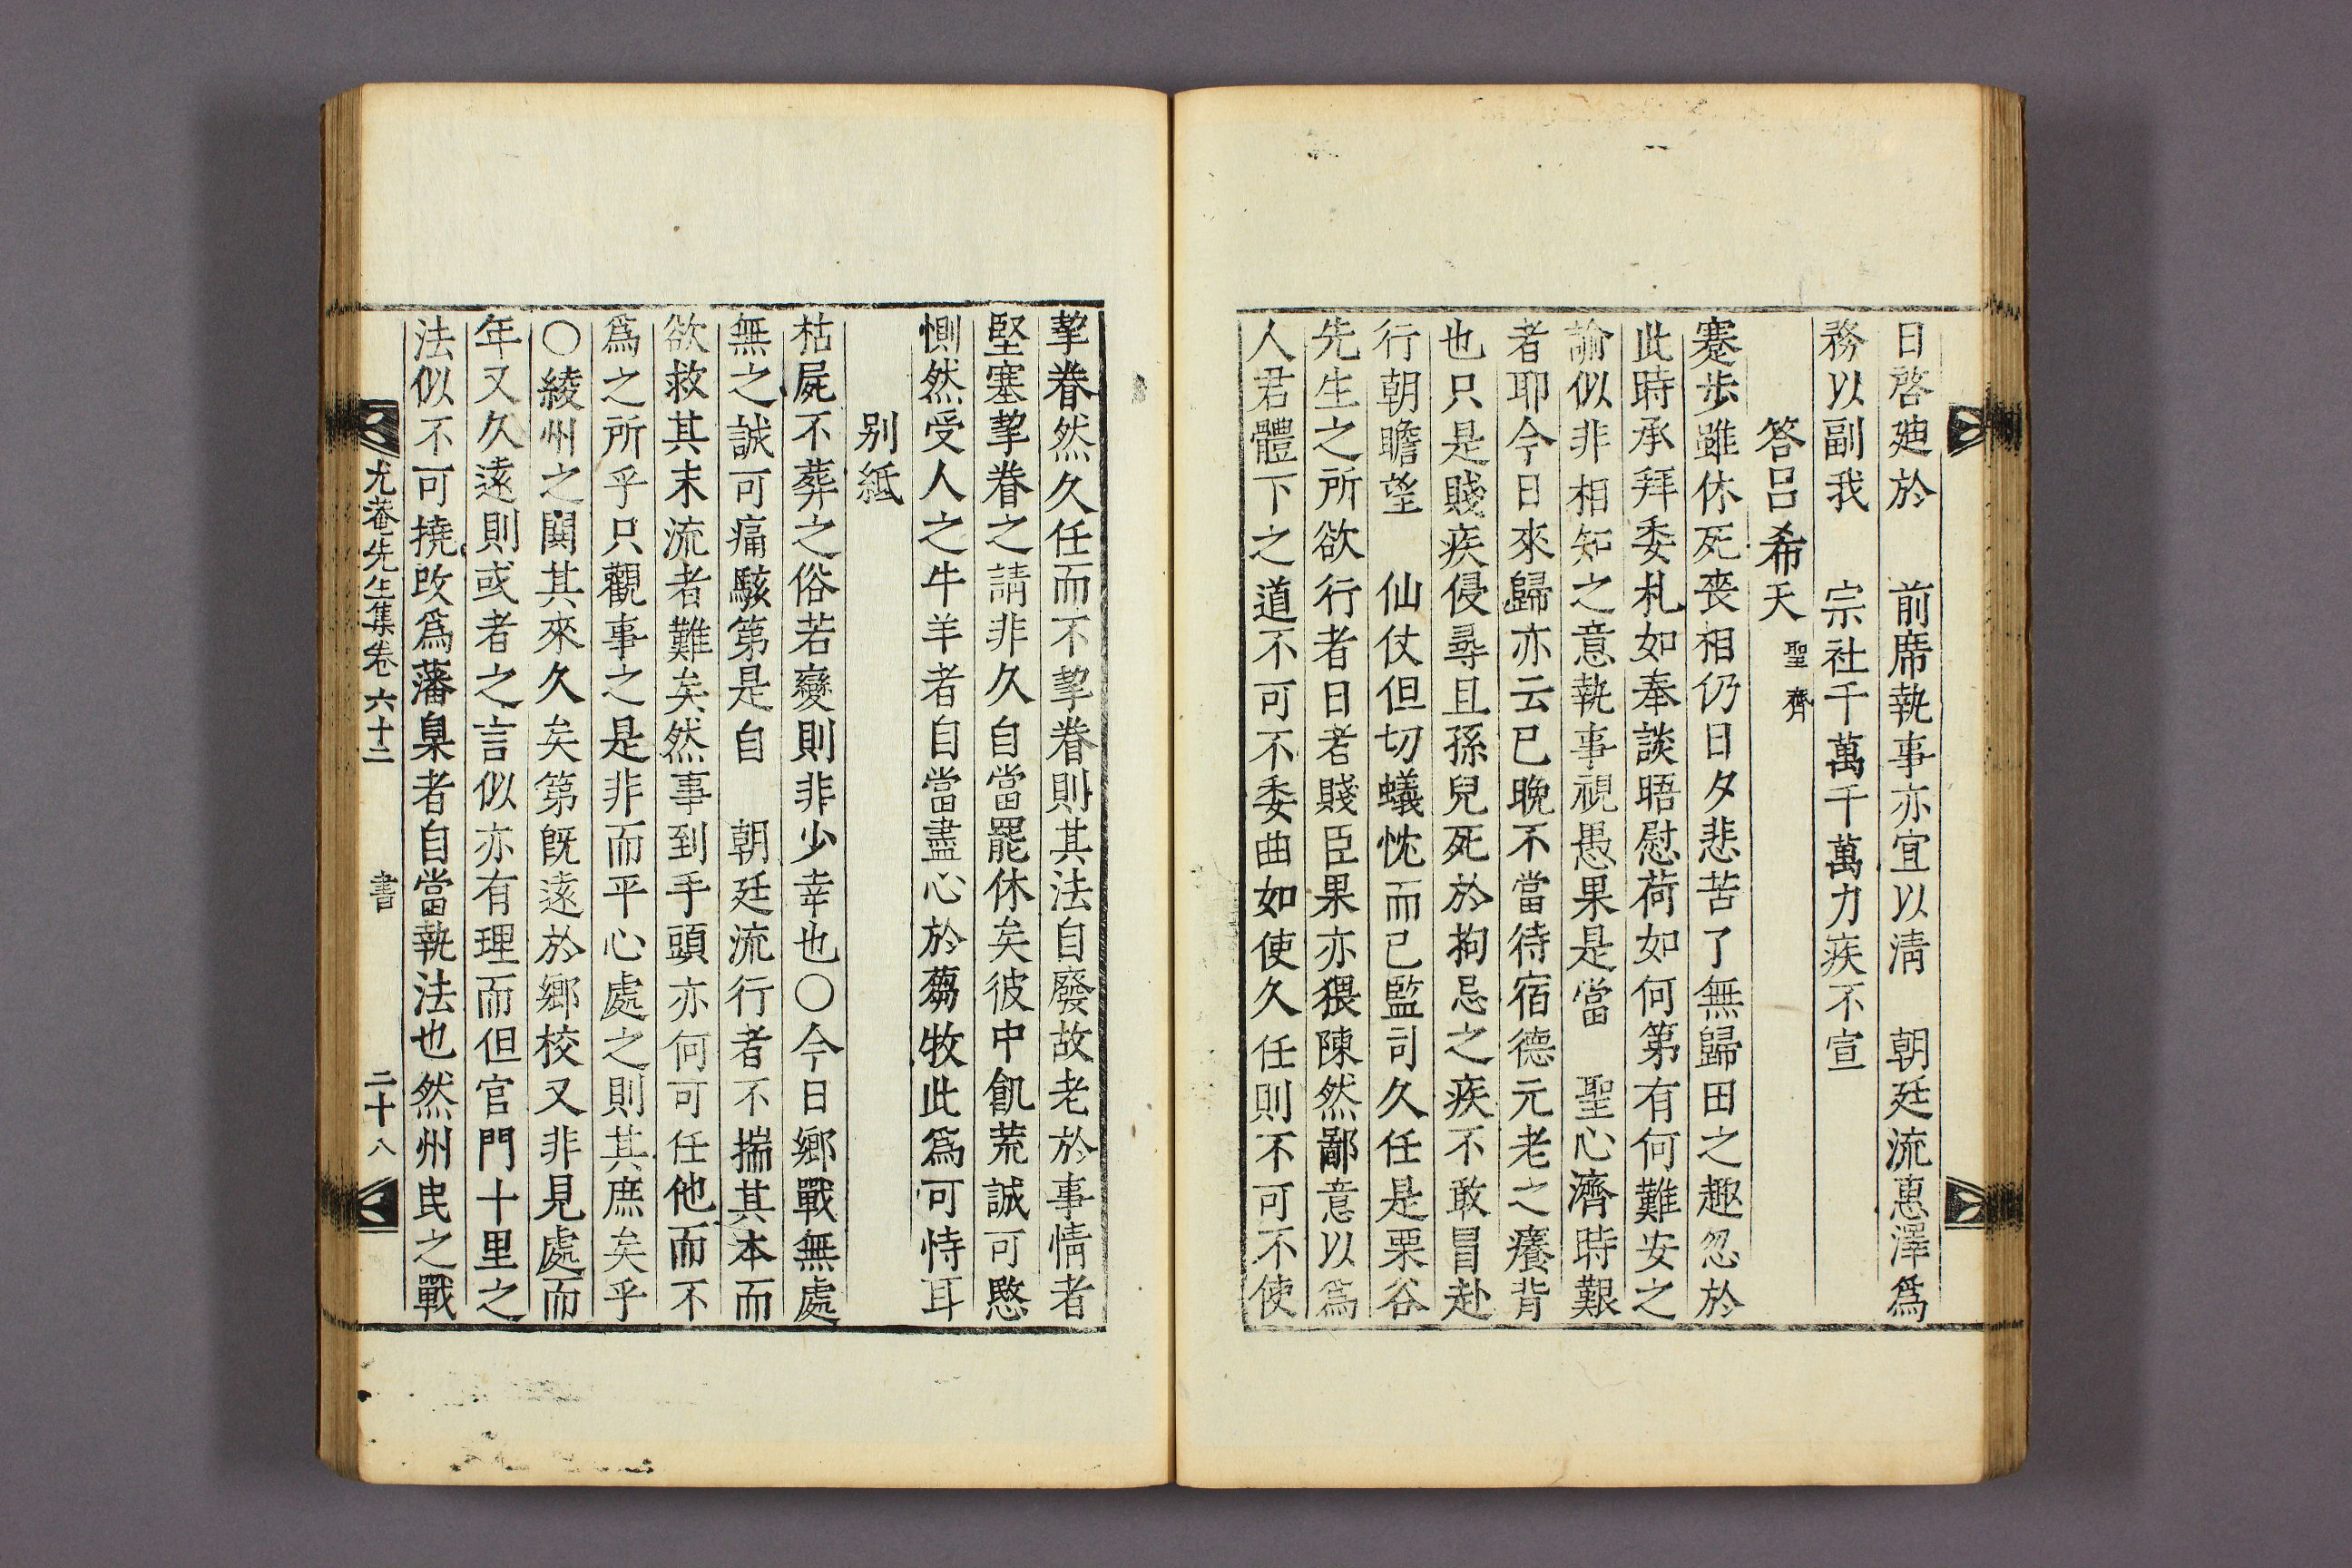 日啓廸於　前席執事亦宜以淸　朝廷流惠澤爲
務以副我　宗社千萬千萬力疾不宣
答呂希天聖齊
蹇歩雖休死喪相仍日夕悲苦了無歸田之趣忽於
此時承拜委札如奉談晤慰荷如何第有何難安之
諭似非相知之意執事視愚果是當　聖心濟時艱
者耶今日來歸亦云已晩不當待宿德元老之癢背
也只是賤疾侵尋且孫兒死於拘忌之疾不敢冒赴
行朝瞻望　仙仗但切蟻忱而已監司久任是栗谷
先生之所欲行者日者賤臣果亦猥陳然鄙意以爲
人君體下之道不可不委曲如使久任則不可不使
挈眷然久任而不挈眷則其法自廢故老於事情者
堅塞挈眷之請非久自當罷休矣彼中飢荒誠可愍
惻然受人之牛羊者自當盡心於蒭牧此爲可恃耳
別紙
枯屍不葬之俗若變則非少幸也○今日鄕戰無處
無之誠可痛駭第是自　朝廷流行者不揣其本而
欲救其末流者難矣然事到手頭亦何可任他而不
爲之所乎只觀事之是非而平心處之則其庶矣乎
○綾州之鬨其來久矣第旣遠於鄕校又非見處而
年又久遠則或者之言似亦有理而但官門十里之
法似不可撓改爲藩臬者自當執法也然州民之戰
尤菴先生集卷六十二　書　二十八